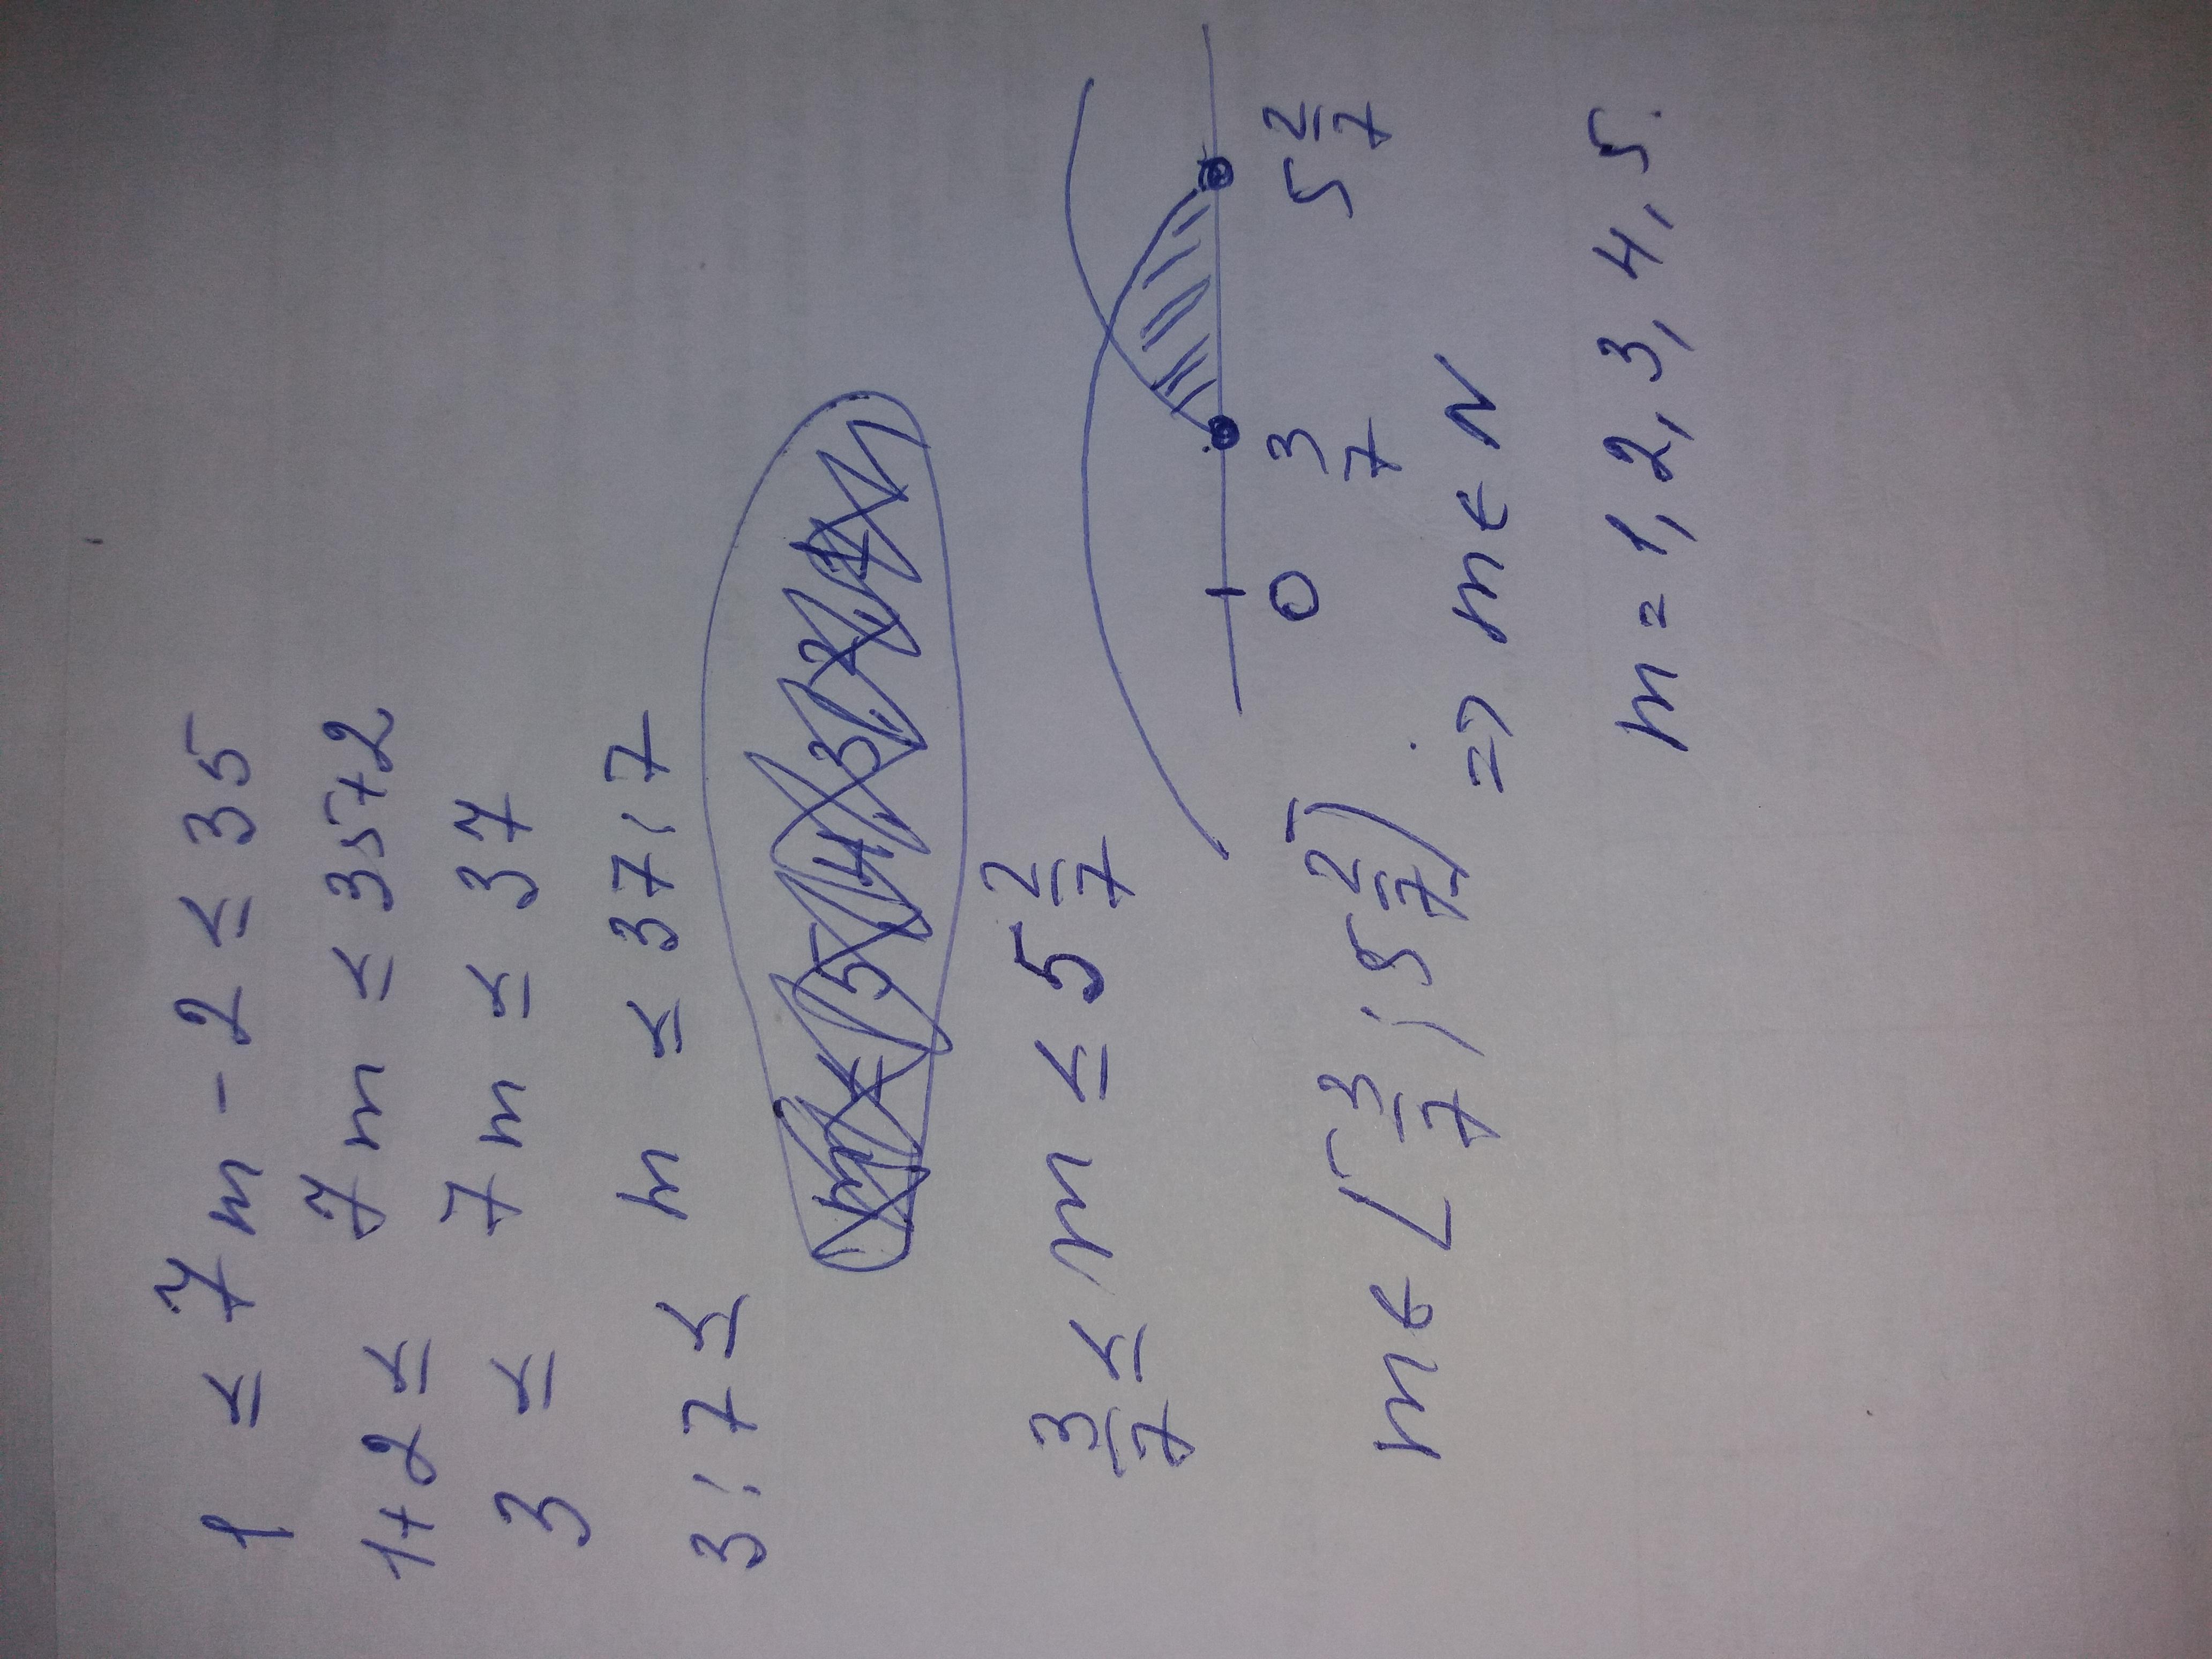 1 ≤ 7m - 2 ≤ 35
1+2 ≤ 7m ≤ 35+2
3 ≤ 7m ≤ 37
3:7 ≤ m ≤ 37:7
3/7 ≤ m ≤ 5 2/7
0 3/7 5 2/7
m ∈ [3/7; 5 2/7] => m ∈ N
m = 1, 2, 3, 4, 5.